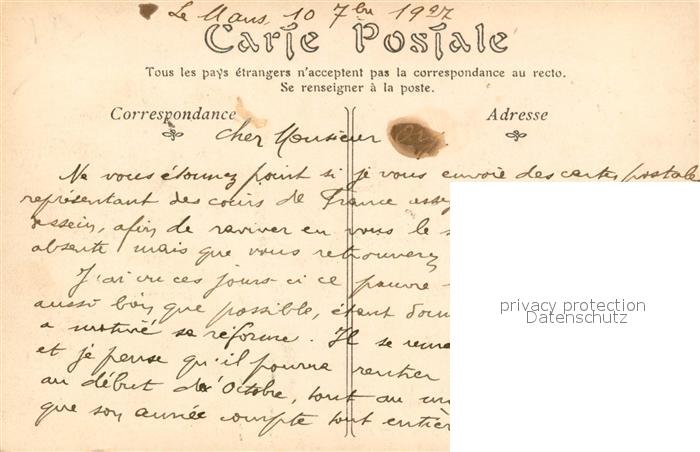 Le Mans, 10 7bre 1927
Carte Postale
Tous les pays étrangers n'acceptent pas la correspondance au recto.
Se renseigner à la poste.
Correspondance
Adresse
Cher Monsieur
Ne vous étonnez point si je vous envoie des cartes postales
représentant des coins de France
dessein, afin de raviver en vous le
absente mais que vous retrouverez
J'ai vu ces jours-ci ce pauvre
aussi bien que possible, étant
a motivé sa réforme. Il se
et je pense qu'il pourra rentrer
au début d'Octobre, tout au
que son année compte tout entière
privacy protection
Datenschutz